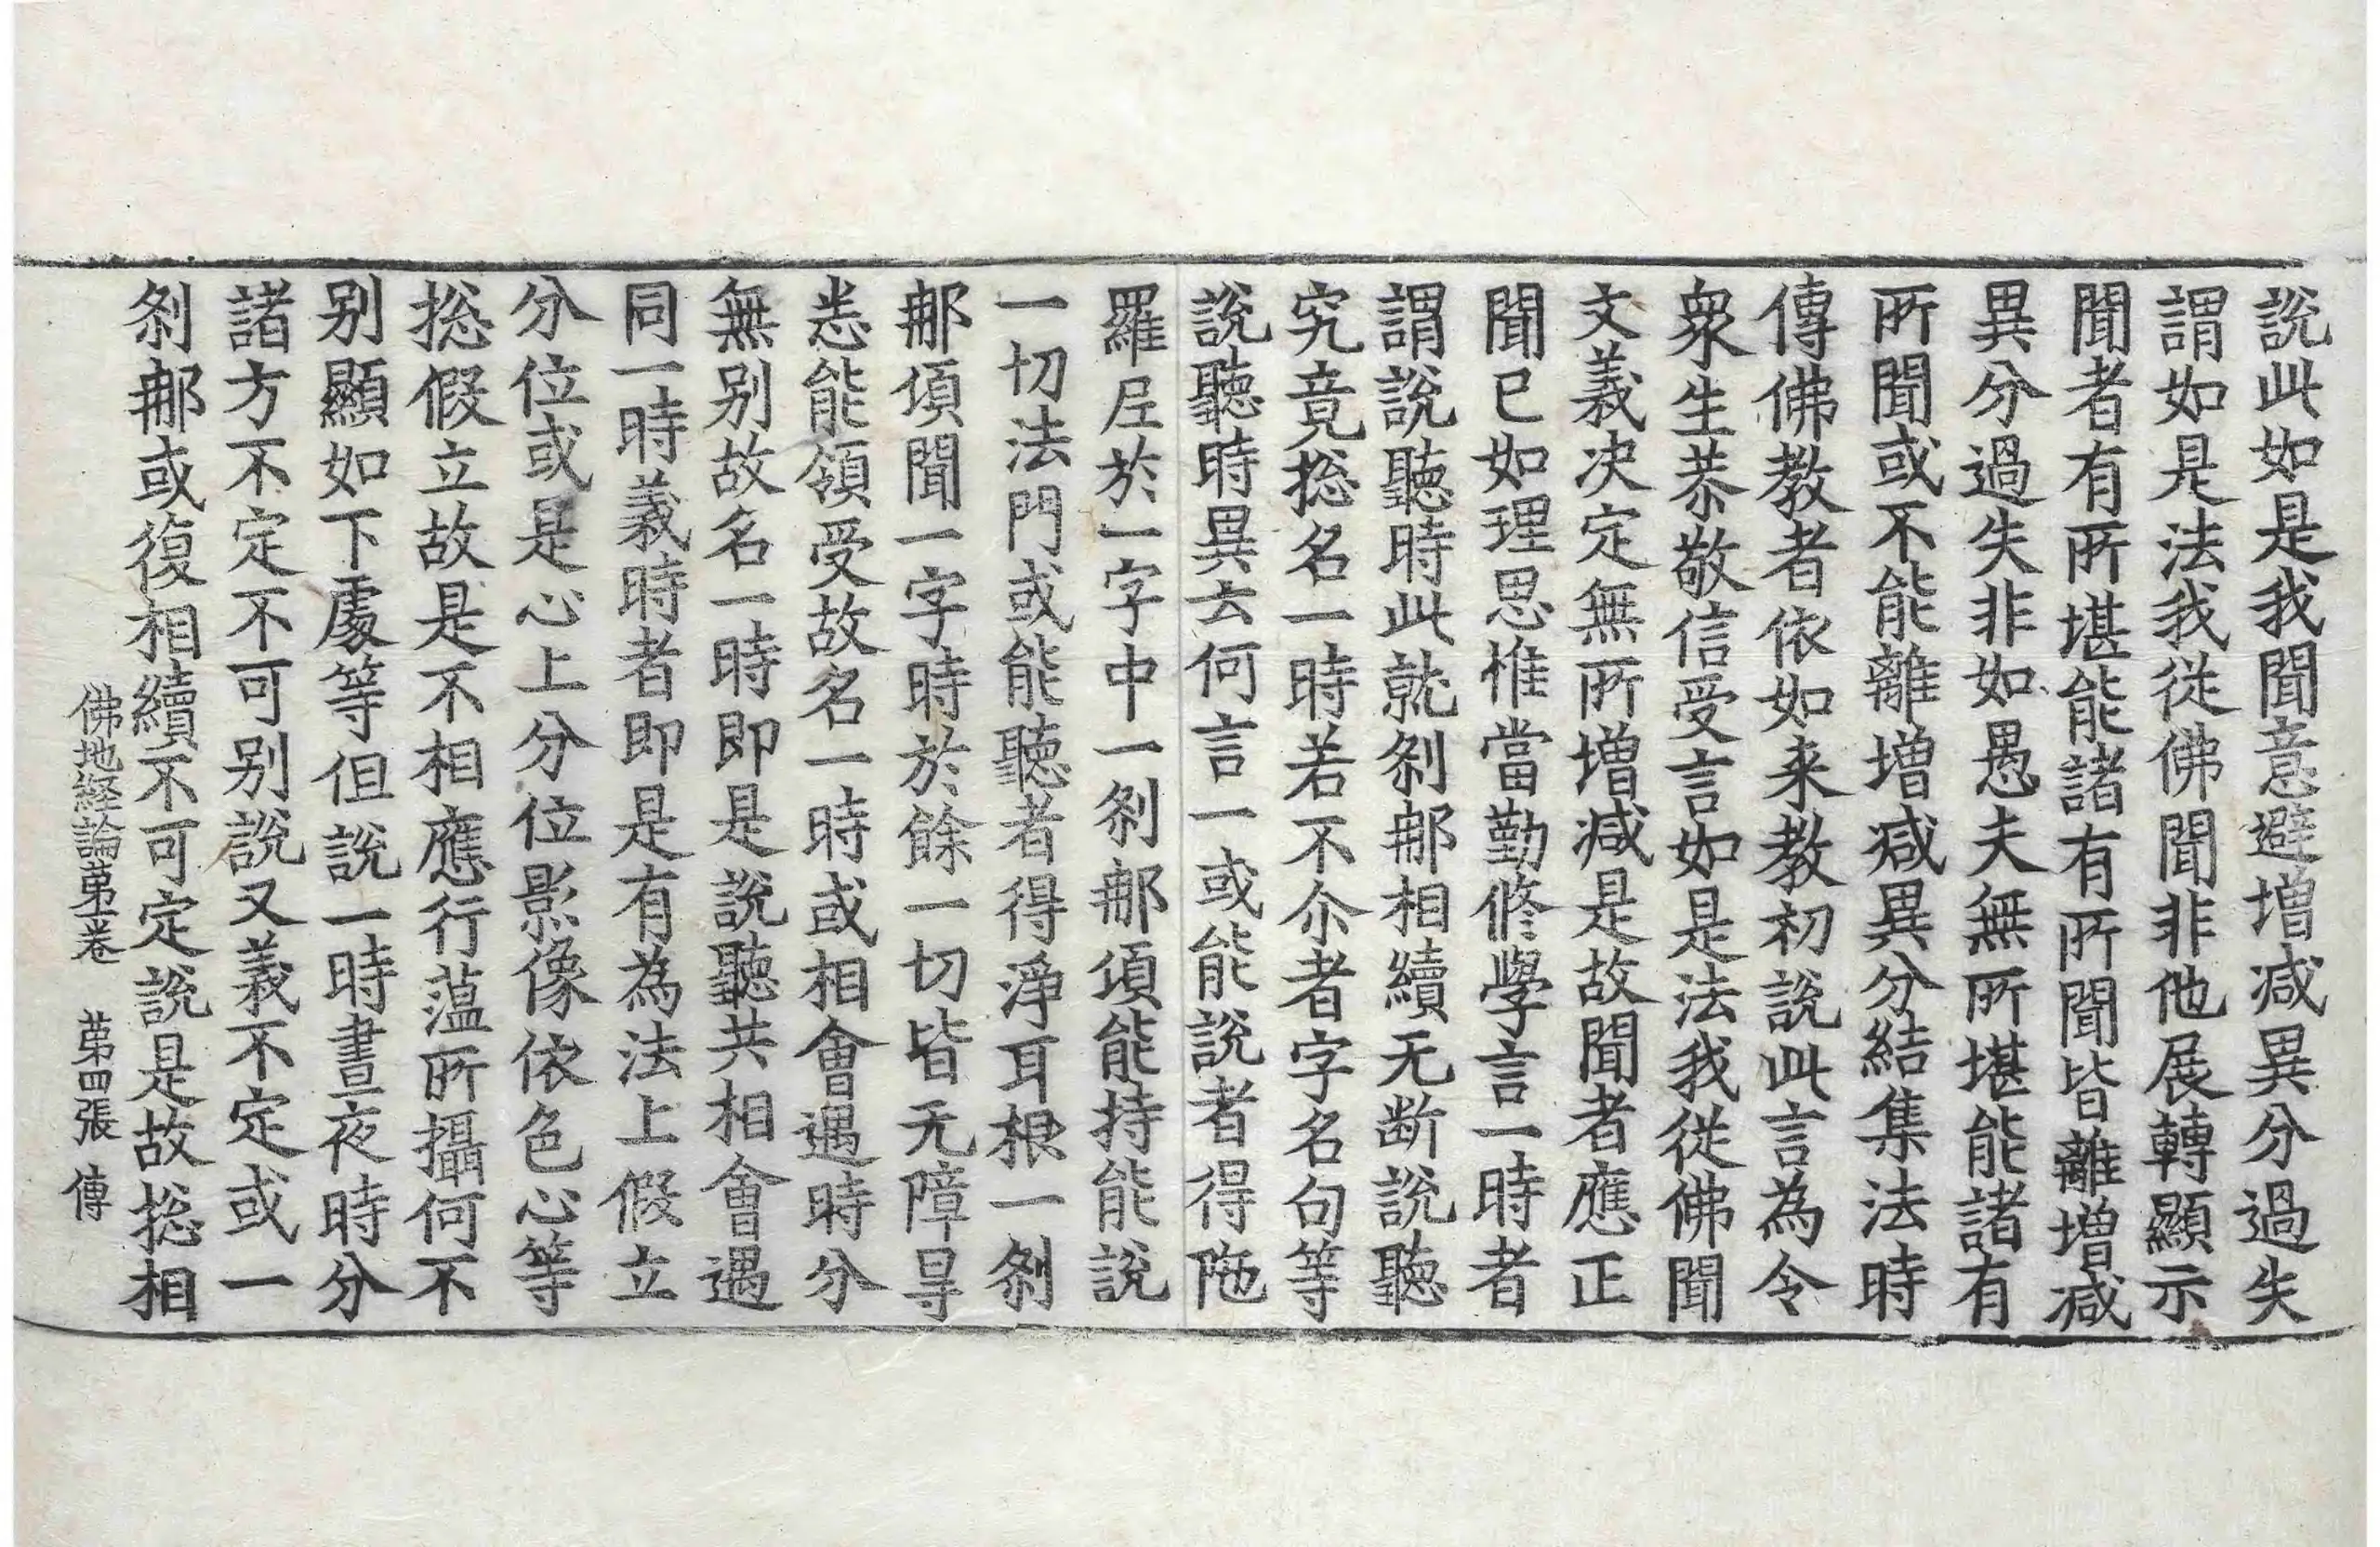 說此如是我聞意避增減異分過失
謂如是法我從佛聞非他展轉顯示
聞者有所堪能諸有所聞皆離增減
異分過失非如愚夫無所堪能諸有
所聞或不能離增減異分結集法時
傳佛教者依如来教初說此言為令
衆生恭敬信受言如是法我從佛聞
文義决定無所增減是故聞者應正
聞已如理思惟當勤修學言一時者
謂說聽時此就刹那相續无断說聽
究竟捴名一時若不尒者字名句等
說聽時異云何言一或能說者得陁
羅尼於一字中一刹那頃能持能說
一切法門或能聽者得淨耳根一刹
那頃聞一字時於餘一切皆无障㝵
悉能領受故名一時或相會遇時分
無别故名一時即是說聽共相會遇
同一時義時者即是有為法上假立
分位或是心上分位影像依色心等
捴假立故是不相應行蕰所攝何不
别顯如下處等但說一時晝夜時分
諸方不定不可别說又義不定或一
刹那或復相續不可定說是故捴相
佛地経論第一卷 第四張 傳